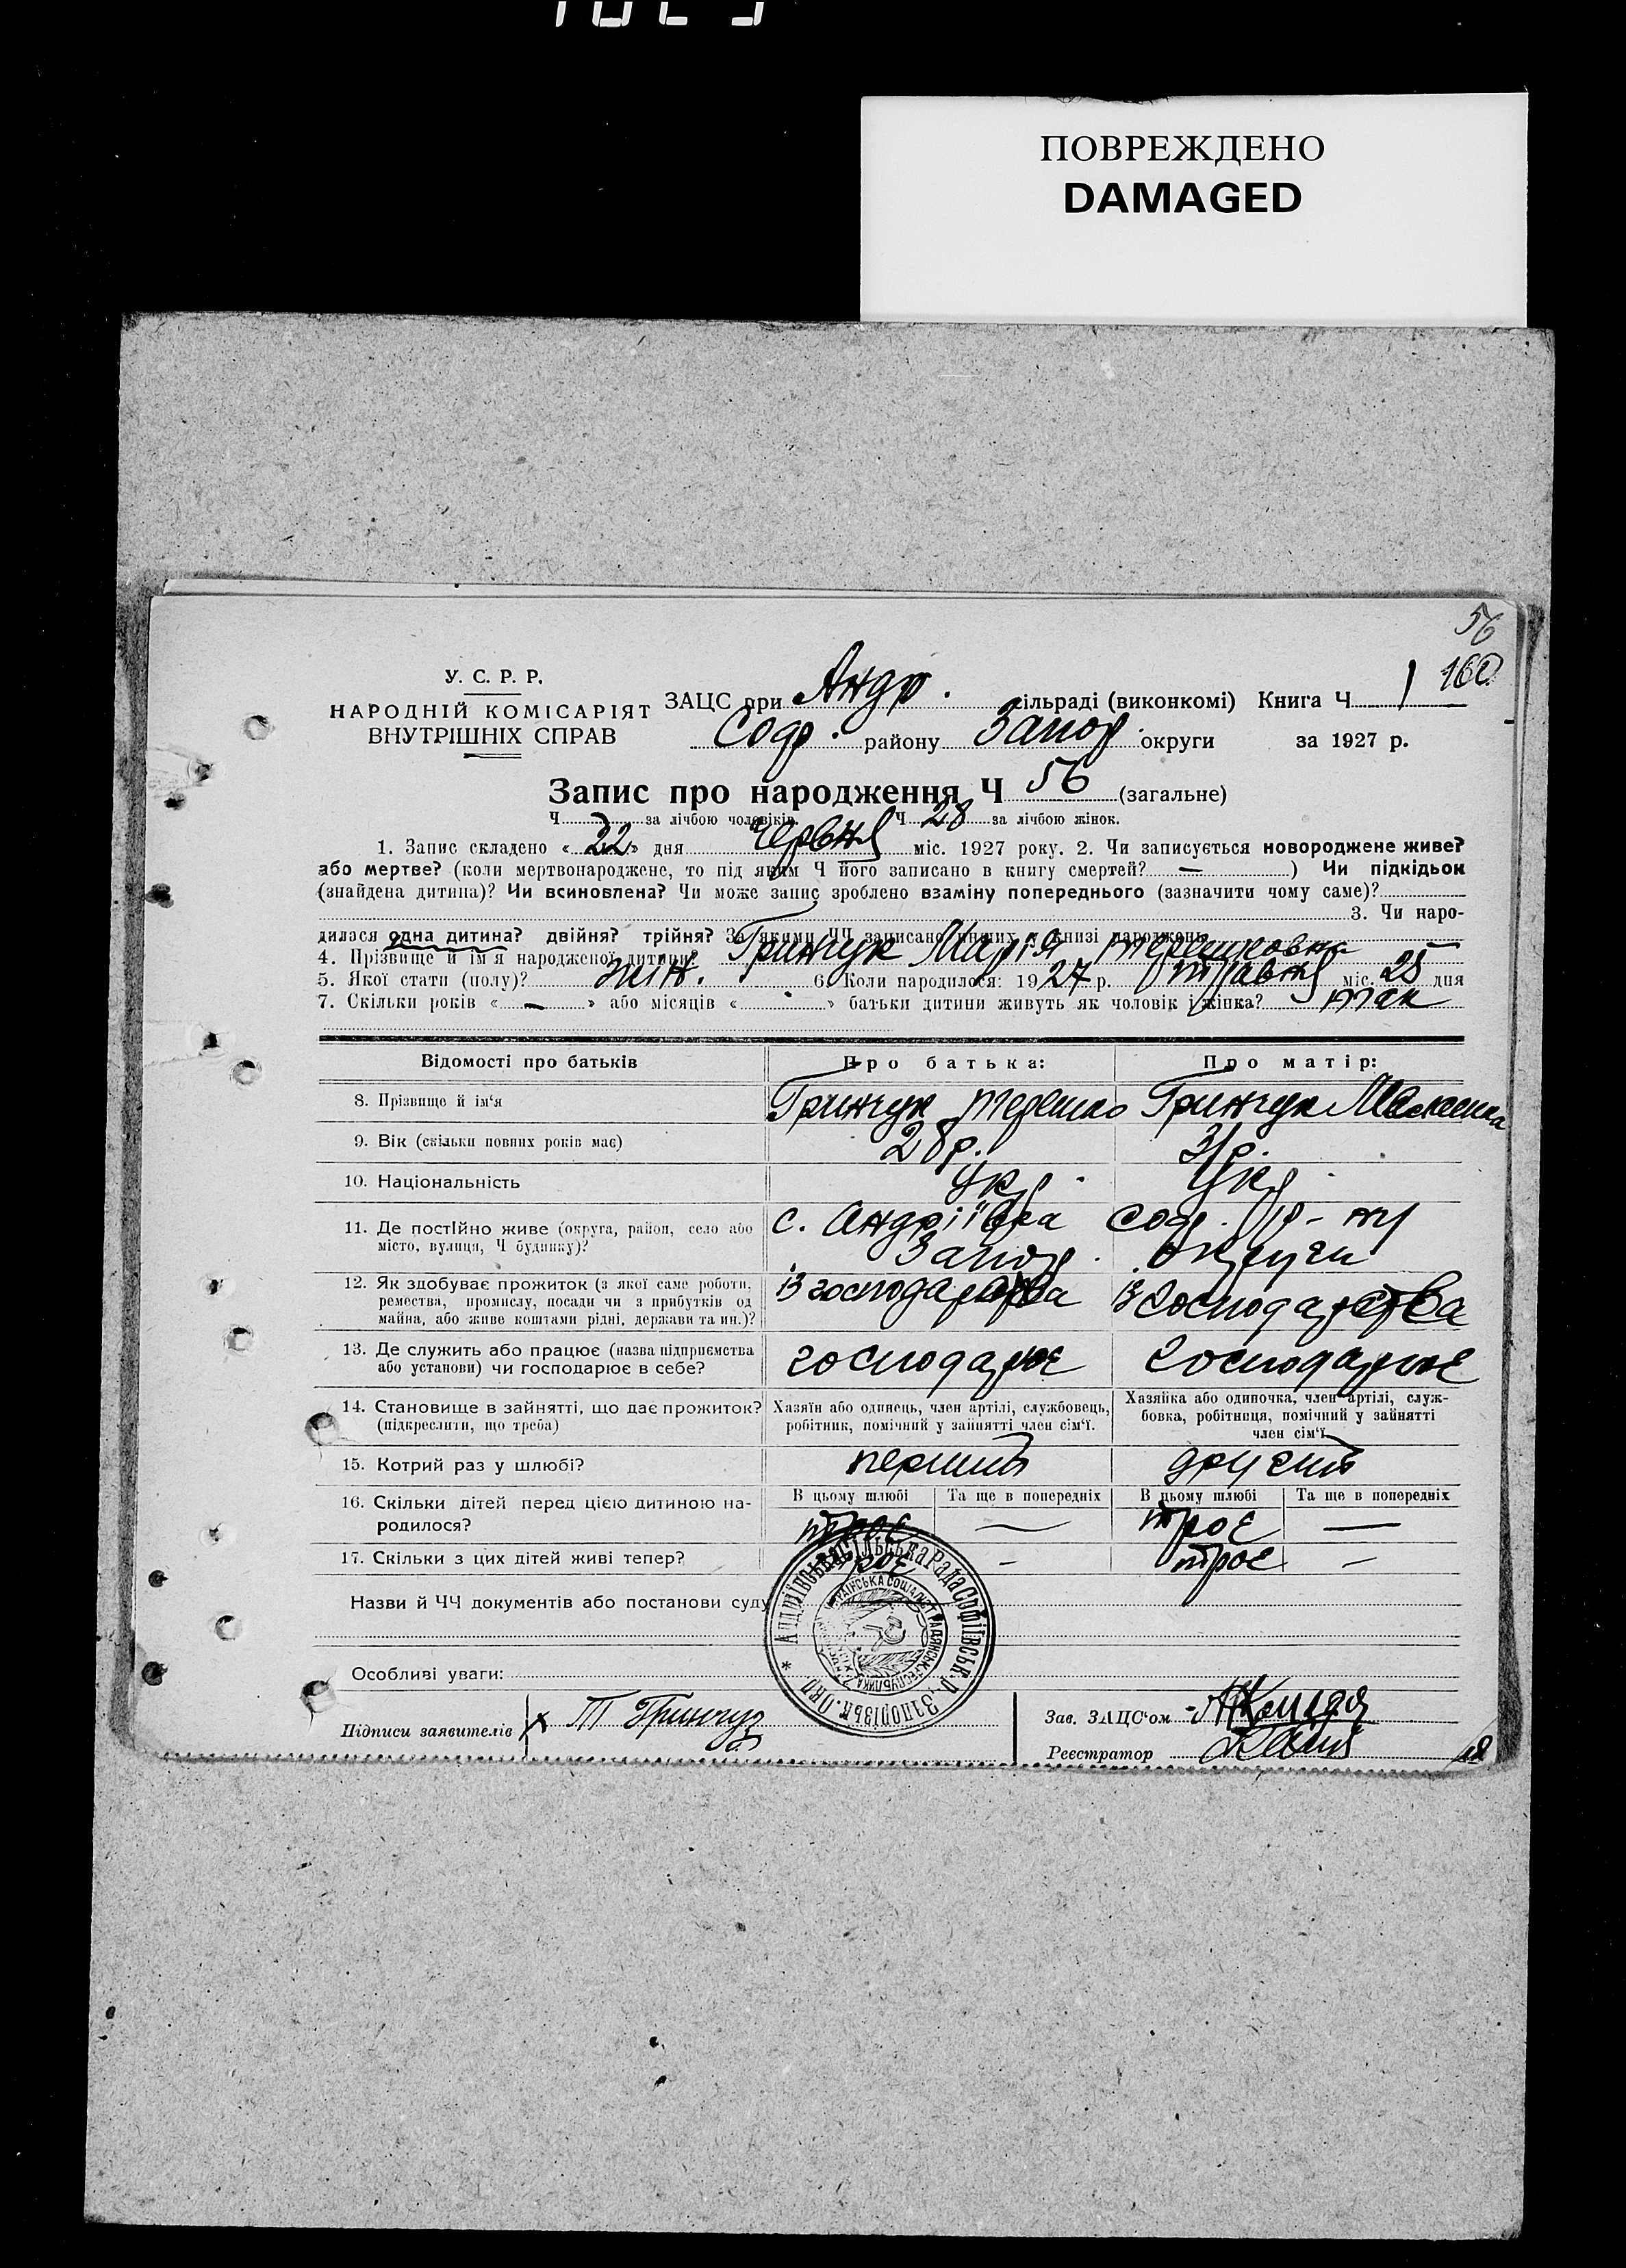 ПОВРЕЖДЕНО
DAMAGED
56
160
У. С. Р. Р.
НАРОДНІЙ КОМІСАРІЯТ
ВНУТРІШНІХ СПРАВ
ЗАЦС при Андр. сільраді (виконкомі) Книга Ч 1
Соф. району Запор. округи за 1927 р.
Запис про народження Ч 56 (загальне)
Ч за лічбою чоловіків. Ч 28 за лічбою жінок.
1. Запис складено « 22 » дня червня міс. 1927 року. 2. Чи записується новороджене живе?
або мертве? (коли мертвонароджене, то під яким Ч його записано в книгу смертей? — ) Чи підкідьок
(знайдена дитина)? Чи всиновлена? Чи може запис зроблено взаміну попереднього (зазначити чому саме)?
3. Чи наро-
дилася одна дитина? двійня? трійня? За якими ЧЧ записано инших у книзі народжень
4. Прізвище й ім'я народженої дитини? Гринчук Марія Терешковна
5. Якої стати (полу)? жін. 6. Коли народилося: 1927 р. травня міс. 25 дня
7. Скільки років « — » або місяців « » батьки дитини живуть як чоловік і жінка? так
Відомості про батьків Про батька: Про матір:
8. Прізвище й ім'я Гринчук Терешко Гринчук
9. Вік (скільки повних років має) 28 р. 31 р.
10. Національність Укр. Укр.
11. Де постійно живе (округа, район, село або с. Андріївка Соф. р-ну
місто, вулиця, Ч будинку)? Запор. округи
12. Як здобуває прожиток (з якої саме роботи, із господарства із господарства
ремества, промислу, посади чи з прибутків од
майна, або живе коштами рідні, держави та ин.)?
13. Де служить або працює (назва підприємства господарює господарює
або установи) чи господарює в себе?
14. Становище в зайнятті, що дає прожиток? Хазяїн або одинець, член артілі, службовець, Хазяйка або одиночка, член артілі, служ-
(підкреслити, що треба) робітник, помічний у зайнятті член сім'ї. бовка, робітниця, помічний у зайнятті
член сім'ї
15. Котрий раз у шлюбі? перший другий
16. Скільки дітей перед цією дитиною на- В цьому шлюбі Та ще в попередніх В цьому шлюбі Та ще в попередніх
родилося? троє — троє —
17. Скільки з цих дітей живі тепер? троє — троє —
Назви й ЧЧ документів або постанови суду
Андріївська сільська Рада Софіївськ. р. Запорізьк. окр.
Особливі уваги:
Підписи заявителів х Т Гринчук
Зав. ЗАЦС'ом
Реєстратор